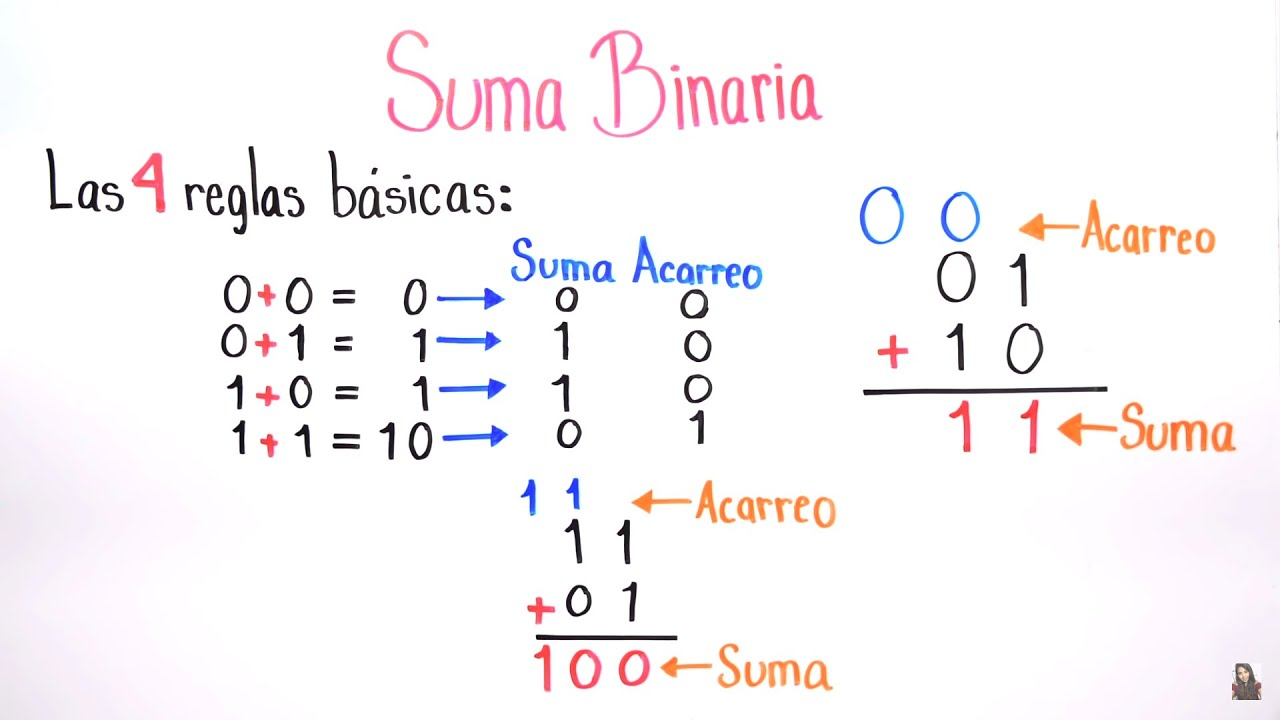 Suma Binaria
Las 4 reglas básicas:
Suma Acarreo
0+0 = 0 → 0 0
0+1 = 1 → 1 0
1+0 = 1 → 1 0
1+1 = 10 → 0 1
0 0 ← Acarreo
0 1
+ 1 0
1 1 ← Suma
1 1 ← Acarreo
1 1
+ 0 1
1 0 0 ← Suma